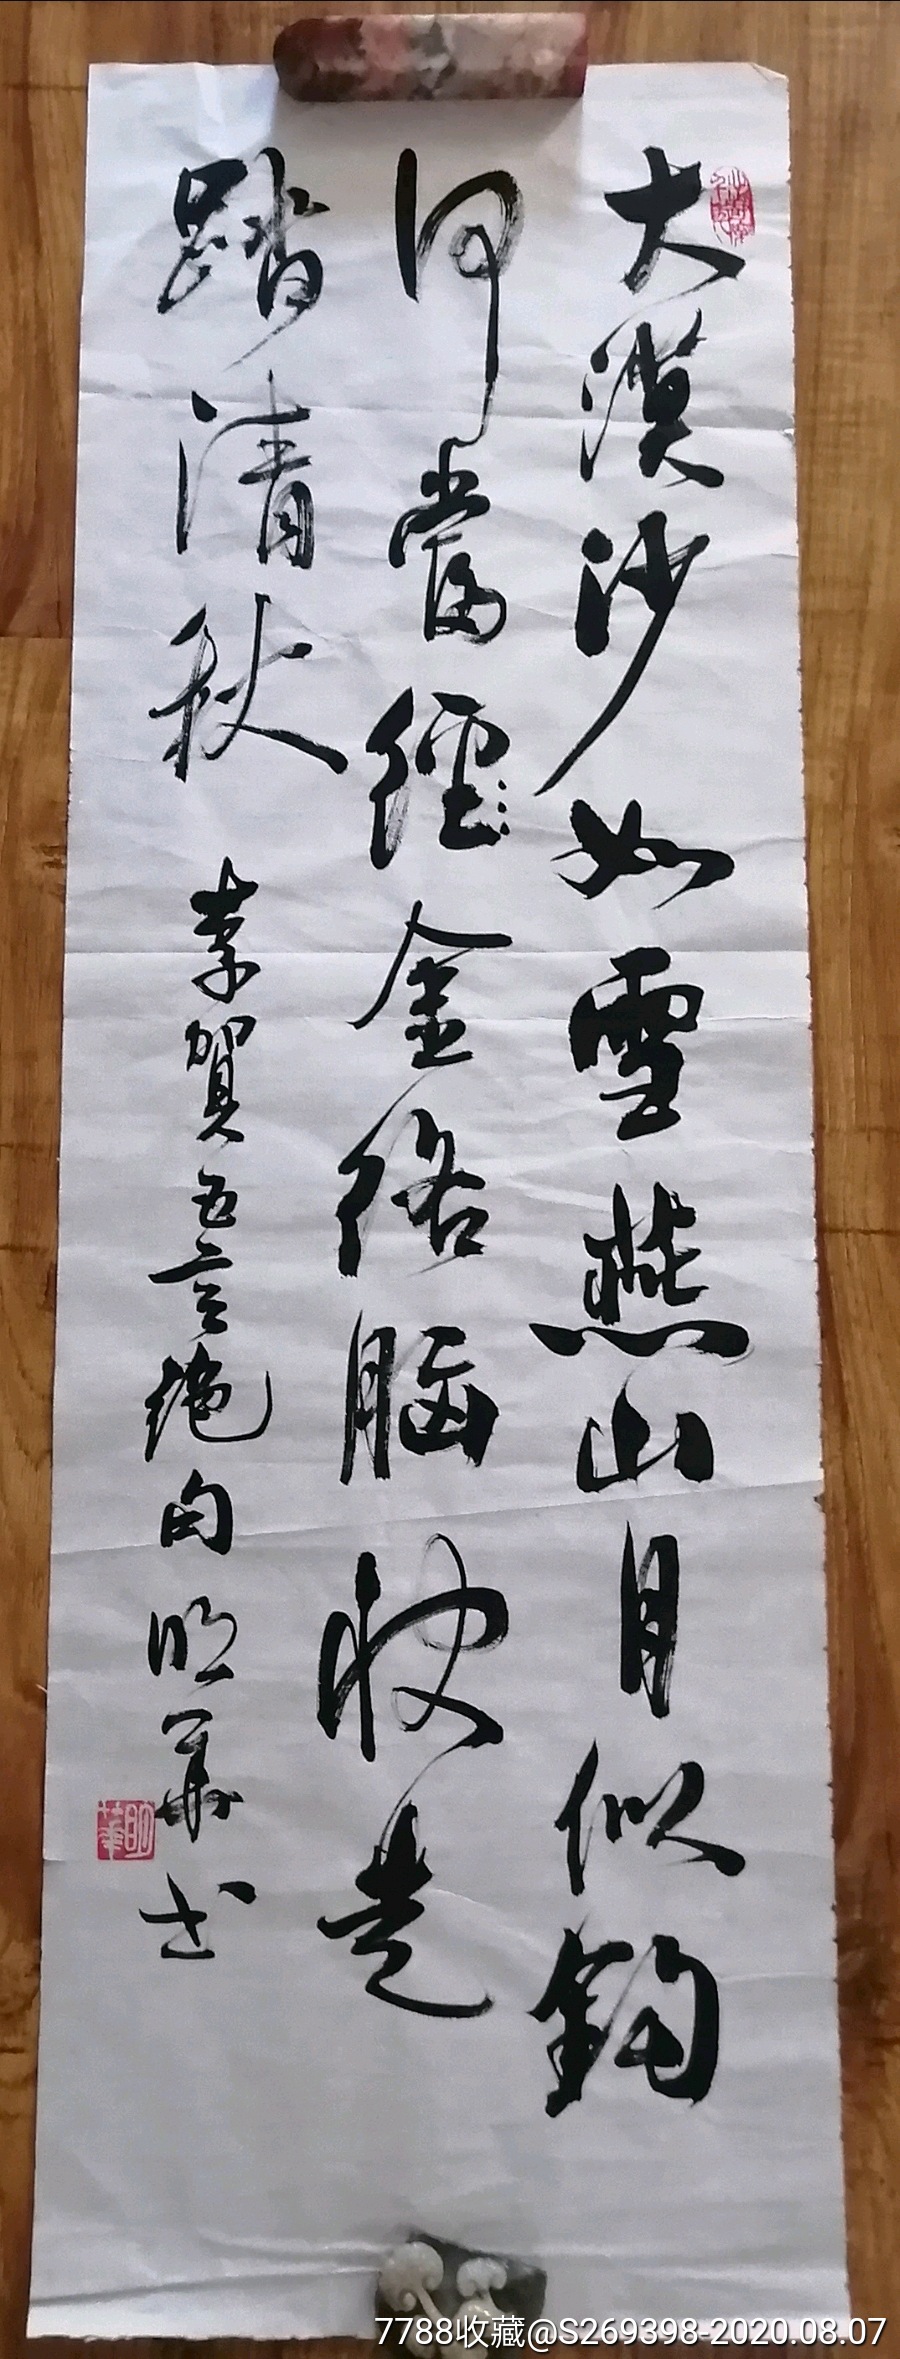 大漠沙如雪燕山月似鈎
何當經金絡脑快走
踏清秋 李賀五言絶句 明華书
明華
7788收藏@S269398-2020.08.07